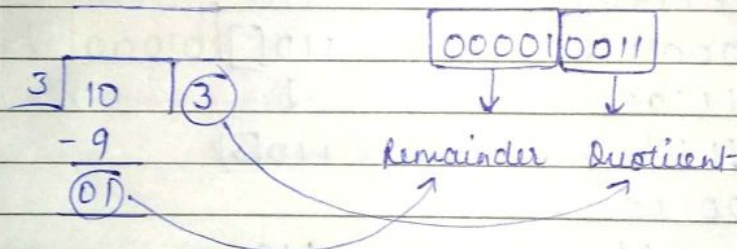 00001 0011
3 10 3
- 9
01
Remainder Quotient